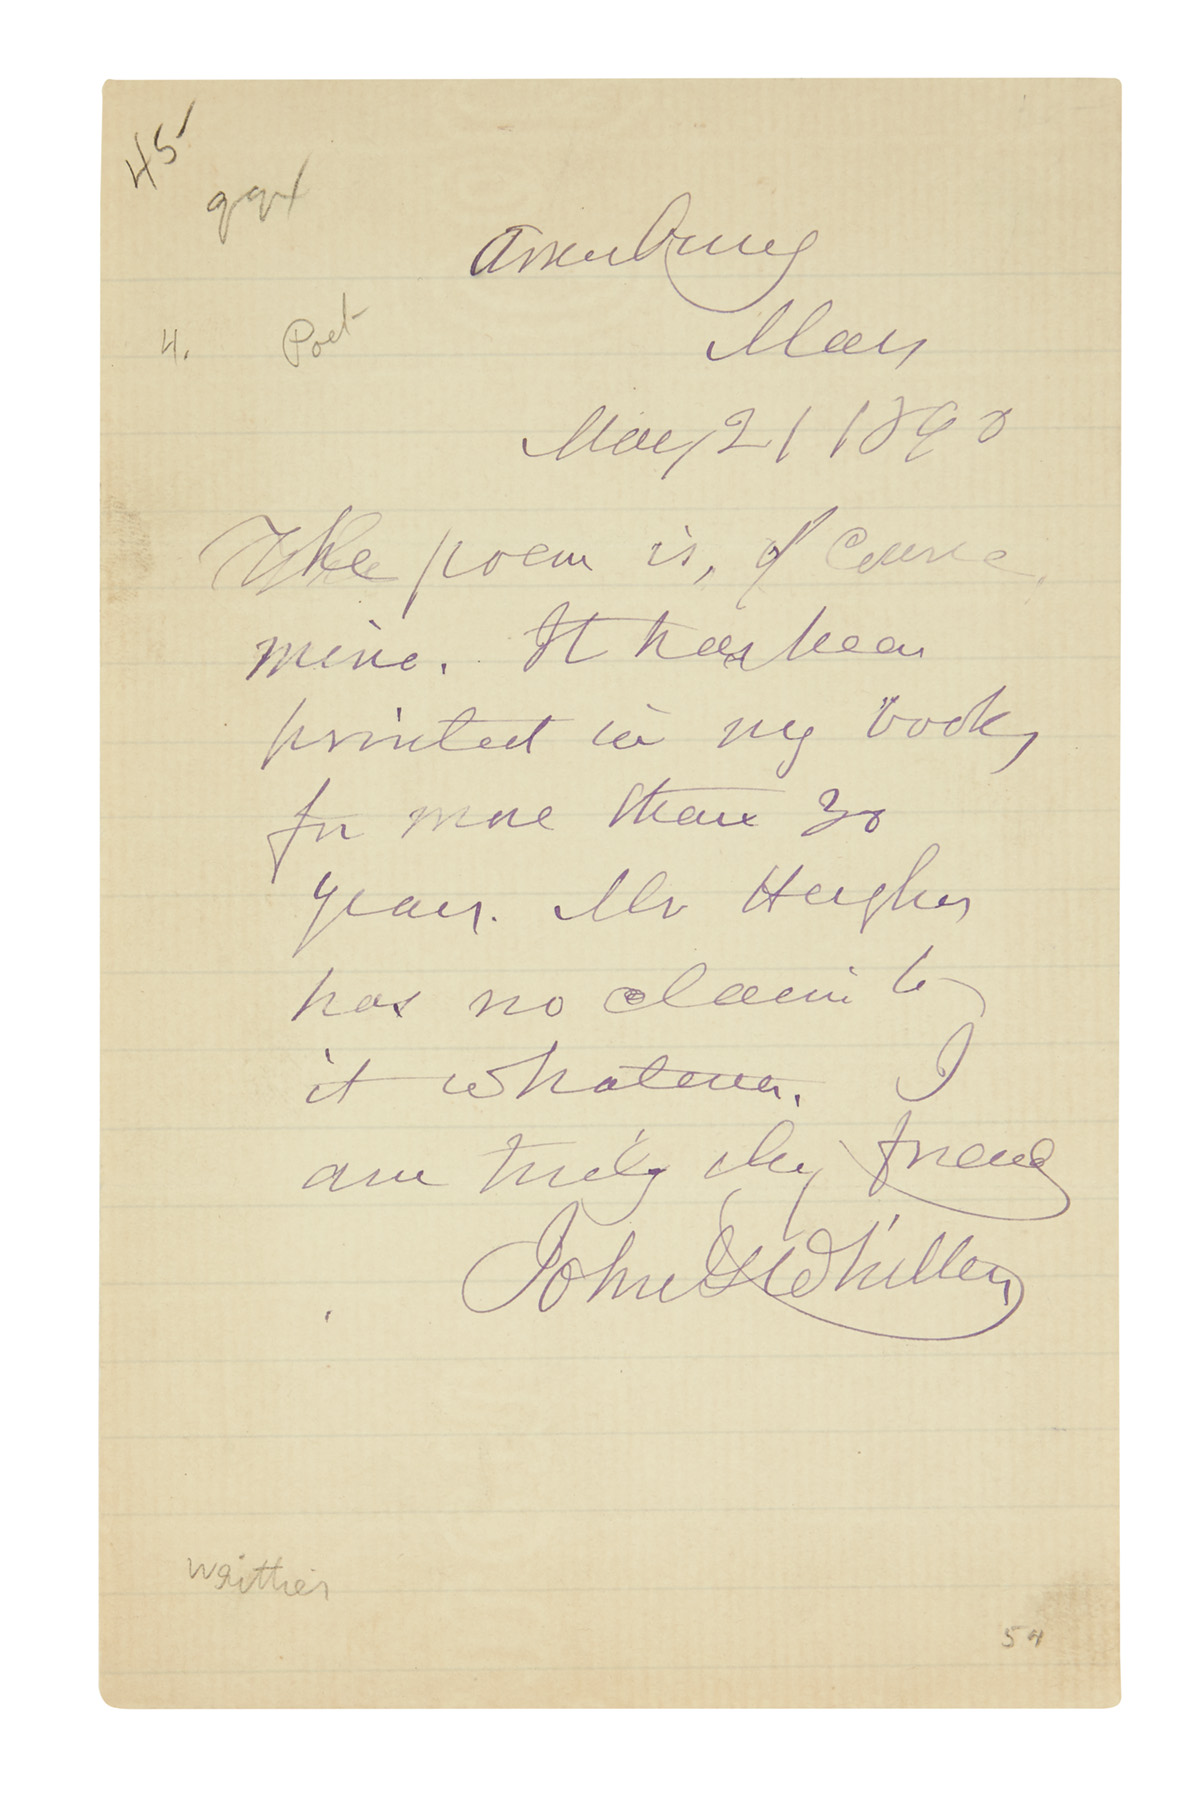 45
Amesbury
4. Poet
Mass
May 21 1890
The poem is, of course,
mine. It has been
printed in my books
for more than 30
years. Mr Hughes
has no claim to
it whatever. I
am truly thy friend
John G Whittier
Whittier
54